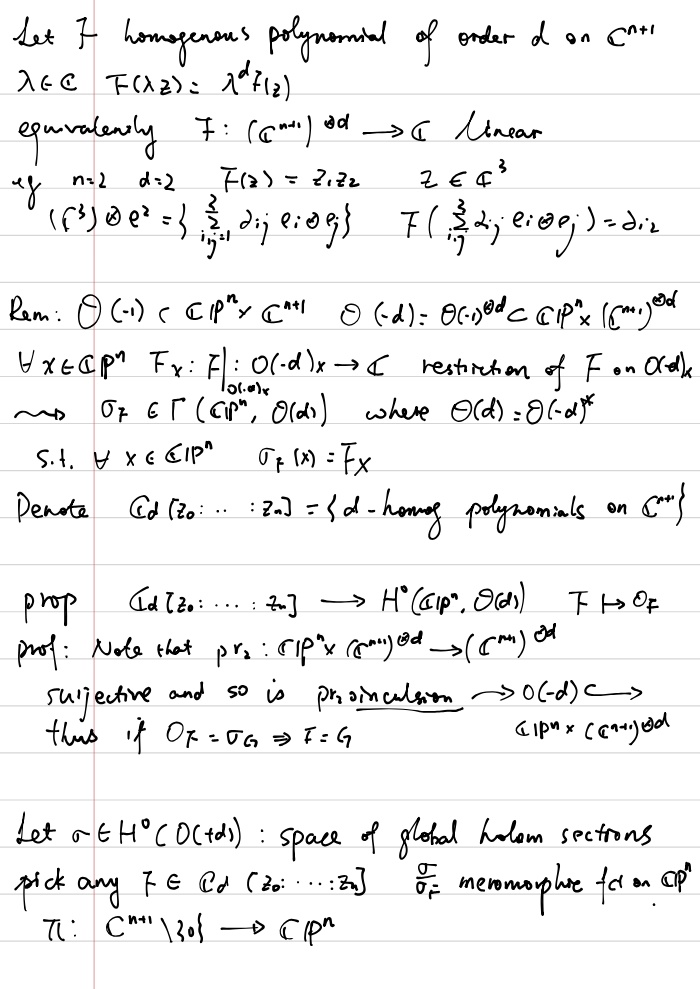 Let F homogenous polynomial of order d on ℂⁿ⁺¹
λ∈ℂ F(λz) = λᵈF(z)
equivalently F: (ℂⁿ⁺¹)^⊗d → ℂ linear
eg n=2 d=2 F(z) = z₁z₂ z ∈ ℂ³
(ℂ³)⊗e² = { Σ³_{i,j=1} a_{ij} e_i⊗e_j } F( Σ³_{i,j} a_{ij} e_i⊗e_j ) = a_{i2}
Rem: O(-1) ⊂ ℂPⁿ × ℂⁿ⁺¹ O(-d) = O(-1)^⊗d ⊂ ℂPⁿ × (ℂⁿ⁺¹)^⊗d
∀x∈ℂPⁿ F_x: F|_{O(-d)_x} : O(-d)_x → ℂ restriction of F on O(-d)_x
⇝ σ_F ∈ Γ(ℂPⁿ, O(d)) where O(d) = O(-d)*
s.t. ∀ x ∈ ℂPⁿ σ_F(x) = F_x
Denote ℂ_d[z₀: ‥ : z_n] = {d-homog polynomials on ℂⁿ⁺¹}
prop ℂ_d[z₀: ⋯ : z_n] → H⁰(ℂPⁿ, O(d)) F ↦ σ_F
prof: Note that pr₂ : ℂPⁿ × (ℂⁿ⁺¹)^⊗d → (ℂⁿ⁺¹)^⊗d
surjective and so is pr₂∘inculsion → O(-d) ↪
ℂPⁿ × (ℂⁿ⁺¹)^⊗d
thus if σ_F = σ_G ⇒ F = G
Let σ ∈ H⁰(O(+d)) : space of global holom sections
pick any F ∈ ℂ_d[z₀: ⋯ : z_n] σ/σ_F = meromorphic fct on ℂPⁿ
π: ℂⁿ⁺¹ \ {0} → ℂPⁿ